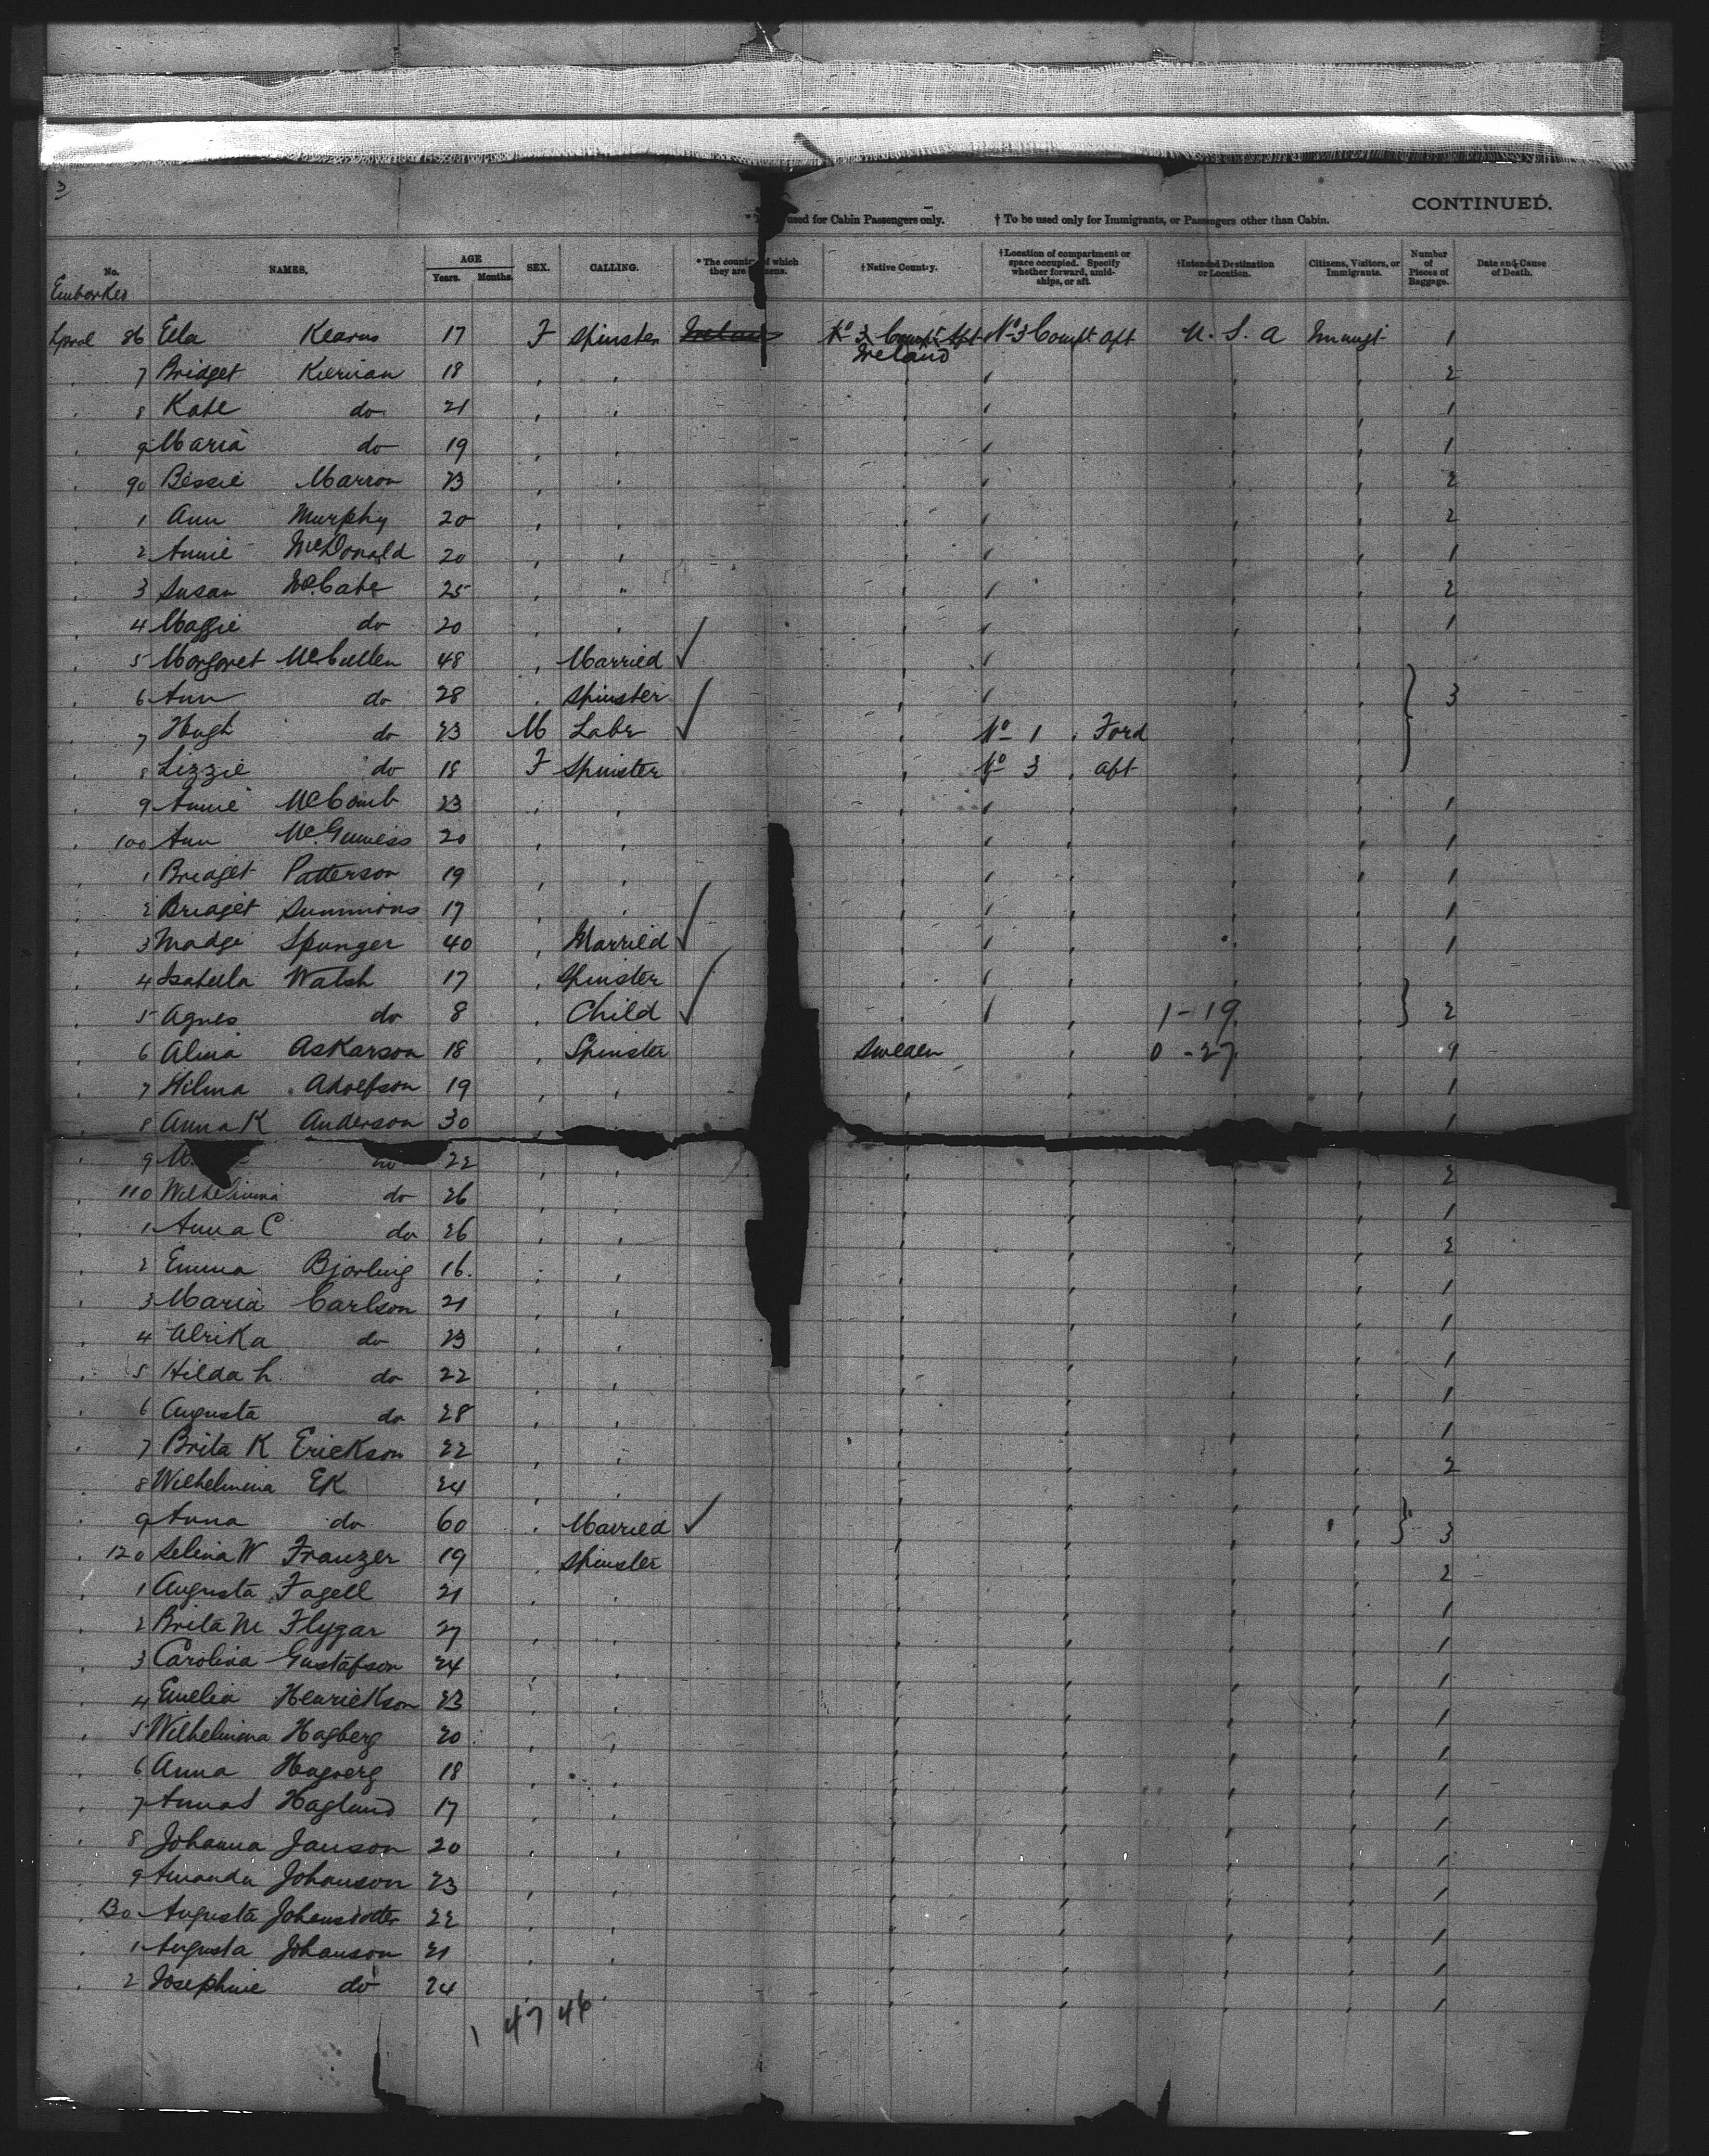 3
CONTINUED.
used for Cabin Passengers only. † To be used only for Immigrants, or Passengers other than Cabin.
No. NAMES. AGE Years. Months. SEX. CALLING. * The country of which they are †Native Country. †Location of compartment or space occupied. Specify whether forward, amidships, or aft. †Intended Destination or Location. Citizens, Visitors, or Immigrants. Number of Pieces of Baggage. Date and Cause of Death.
Embarked
Lpool 86 Ella Kearns 17 F Spinster Ireland No 3 Compt Aft No 3 Compt aft U. S. A Immigt 1
Ireland
7 Bridget Kiernan 18 2
8 Kate do 21 1
9 Maria do 19 1
90 Bessie Marron 23 2
1 Ann Murphy 20 2
2 Annie McDonald 20 1
3 Susan McCabe 25 2
4 Maggie do 20 1
5 Margaret McCullen 48 Married
6 Ann do 28 Spinster 3
7 Hugh do 23 M Labr No 1 Ford
8 Lizzie do 18 F Spinster No 3 aft
9 Annie McComb 23 1
100 Ann McGuiness 20 1
1 Bridget Patterson 19 1
2 Bridget Summions 17 1
3 Madge Spunger 40 Married 1
4 Isabella Walsh 17 Spinster
5 Agnes do 8 Child 1-19 2
6 Alma Askarson 18 Spinster Sweden 0-27 1
7 Hilma Adolfson 19 1
8 Anna K Anderson 30 1
9 do 22 2
110 Wilhelmina do 26 1
1 Anna C do 26 2
2 Emma Bjorling 16 1
3 Maria Carlson 21 1
4 Ulrika do 23 1
5 Hilda L do 22 1
6 Augusta do 28 1
7 Brita K Erickson 22 2
8 Wilhelmina Ek 24
9 Anna do 60 Married 3
120 Selina W Franzer 19 Spinster 2
1 Augusta Fagell 21 1
2 Brita M Flygar 27 1
3 Carolina Gustafson 24 1
4 Emelia Henrickson 23 1
5 Wilhelmina Hagberg 20 1
6 Anna Hagberg 18 1
7 Anna S Haglund 17 1
8 Johanna Janson 20 1
9 Amanda Johanson 23 1
130 Augusta Johansdotter 22 1
1 Augusta Johanson 21 1
2 Josephine do 24 1
1 47 46